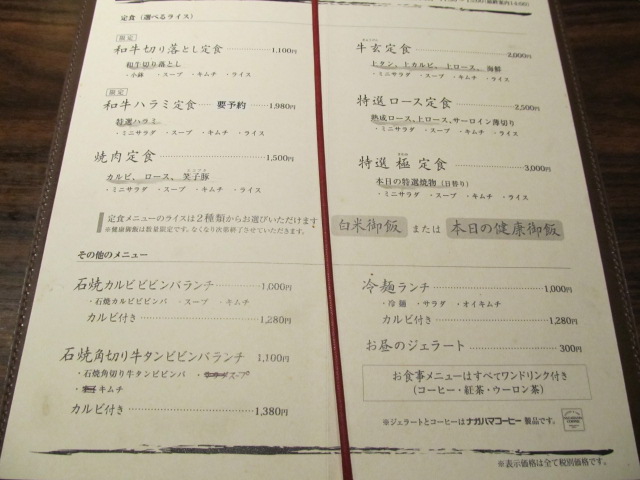 定食（選べるライス）
限定
和牛切り落とし定食 1,100円
和牛切り落とし
・小鉢 ・スープ ・キムチ ・ライス
限定
和牛ハラミ定食 要予約 1,980円
特選ハラミ
・ミニサラダ ・スープ ・キムチ ・ライス
焼肉定食 1,500円
カルビ、ロース、笑子豚
・ミニサラダ ・スープ ・キムチ ・ライス
牛玄定食 2,000円
上タン、上カルビ、上ロース、海鮮
・ミニサラダ ・スープ ・キムチ ・ライス
特選ロース定食 2,500円
熟成ロース、上ロース、サーロイン薄切り
・ミニサラダ ・スープ ・キムチ ・ライス
特選 極 定食 3,000円
本日の特選焼物（日替り）
・ミニサラダ ・スープ ・キムチ ・ライス
定食メニューのライスは2種類からお選びいただけます
※健康御飯は数量限定です。なくなり次第終了させていただきます。
白米御飯 または 本日の健康御飯
その他のメニュー
石焼カルビビビンバランチ 1,000円
・石焼カルビビビンバ ・スープ ・キムチ
カルビ付き 1,280円
石焼角切り牛タンビビンバランチ 1,100円
・石焼角切り牛タンビビンバ ・スープ
・キムチ
カルビ付き 1,380円
冷麺ランチ 1,000円
・冷麺 ・サラダ ・オイキムチ
カルビ付き 1,280円
お昼のジェラート 300円
お食事メニューはすべてワンドリンク付き
（コーヒー・紅茶・ウーロン茶）
※ジェラートとコーヒーはナガハマコーヒー製品です。
※表示価格は全て税別価格です。